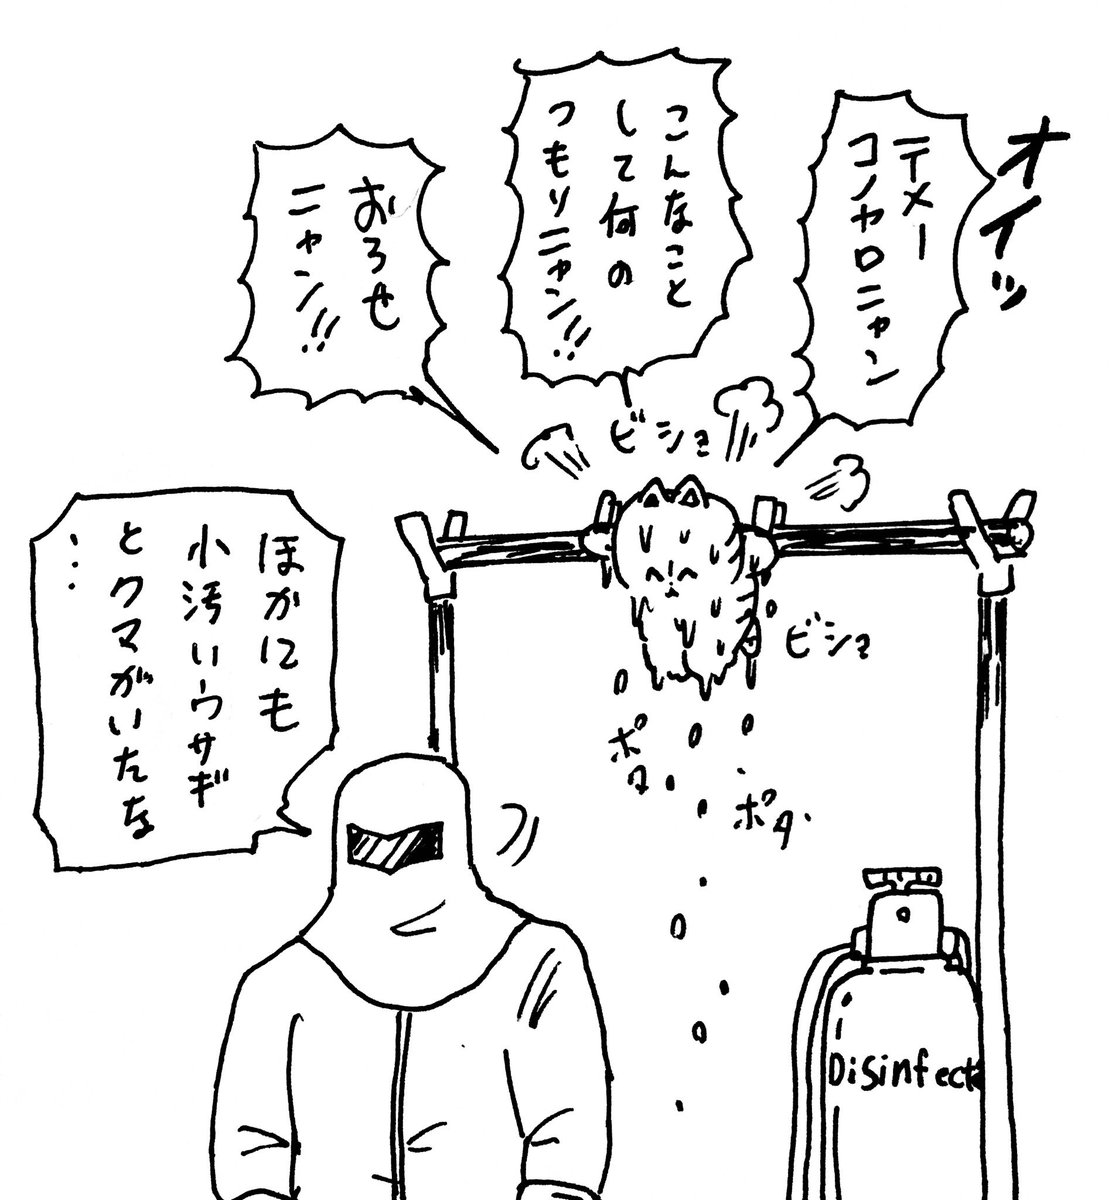 オイッ
テメー
コノヤロニャン
こんなこと
して何の
つもりニャン!!
おろせ
ニャン!!
ビショ
ビショ
ポタ
ポタ
ほかにも
小汚いウサギ
とクマがいたな
…
Disinfect